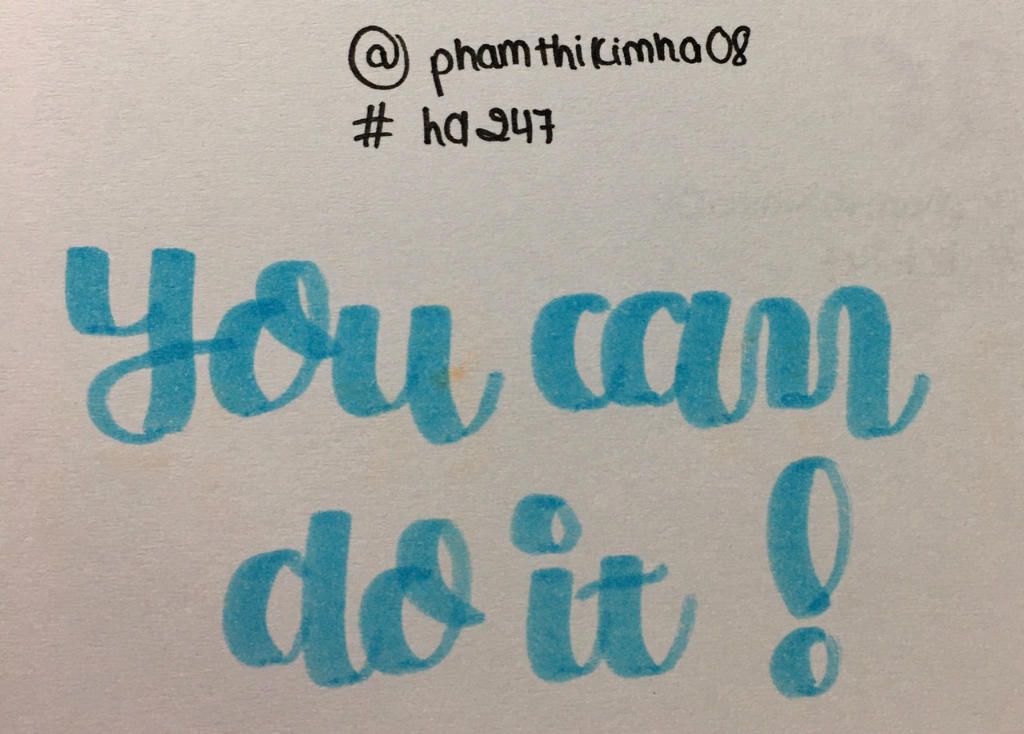 @ phamthikimha08
# ha247
you can
do it!